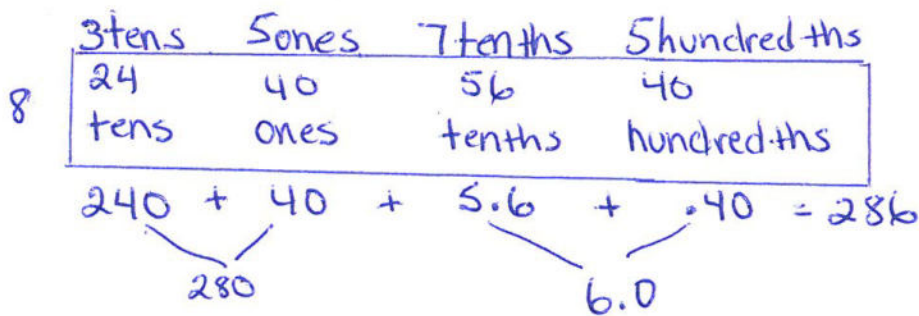 3tens 5ones 7tenths 5hundredths
8
24 40 56 40
tens ones tenths hundredths
240 + 40 + 5.6 + .40 = 286
280 6.0